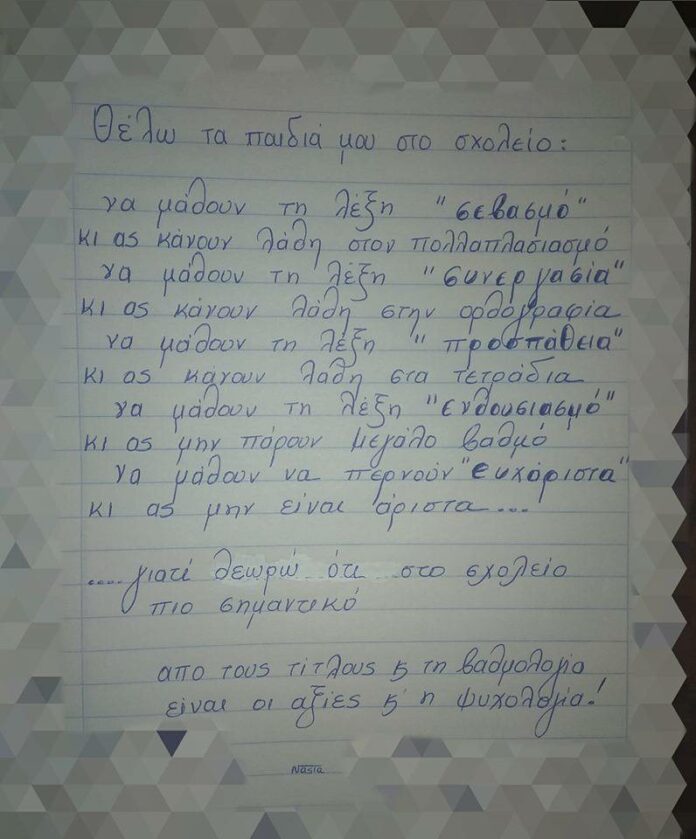 Θέλω τα παιδιά μου στο σχολείο:
να μάθουν τη λέξη "σεβασμό"
κι ας κάνουν λάθη στον πολλαπλασιασμό
να μάθουν τη λέξη "συνεργασία"
κι ας κάνουν λάθη στην ορθογραφία
να μάθουν τη λέξη "προσπάθεια"
κι ας κάνουν λάθη στα τετράδια
να μάθουν τη λέξη "ενθουσιασμό"
κι ας μην πάρουν μεγάλο βαθμό
να μάθουν να περνούν "ευχάριστα"
κι ας μην είναι άριστα....
....γιατί θεωρώ ότι στο σχολείο
πιο σημαντικό
απο τους τίτλους ϗ τη βαθμολογία
είναι οι αξίες ϗ η ψυχολογία!
Nasia